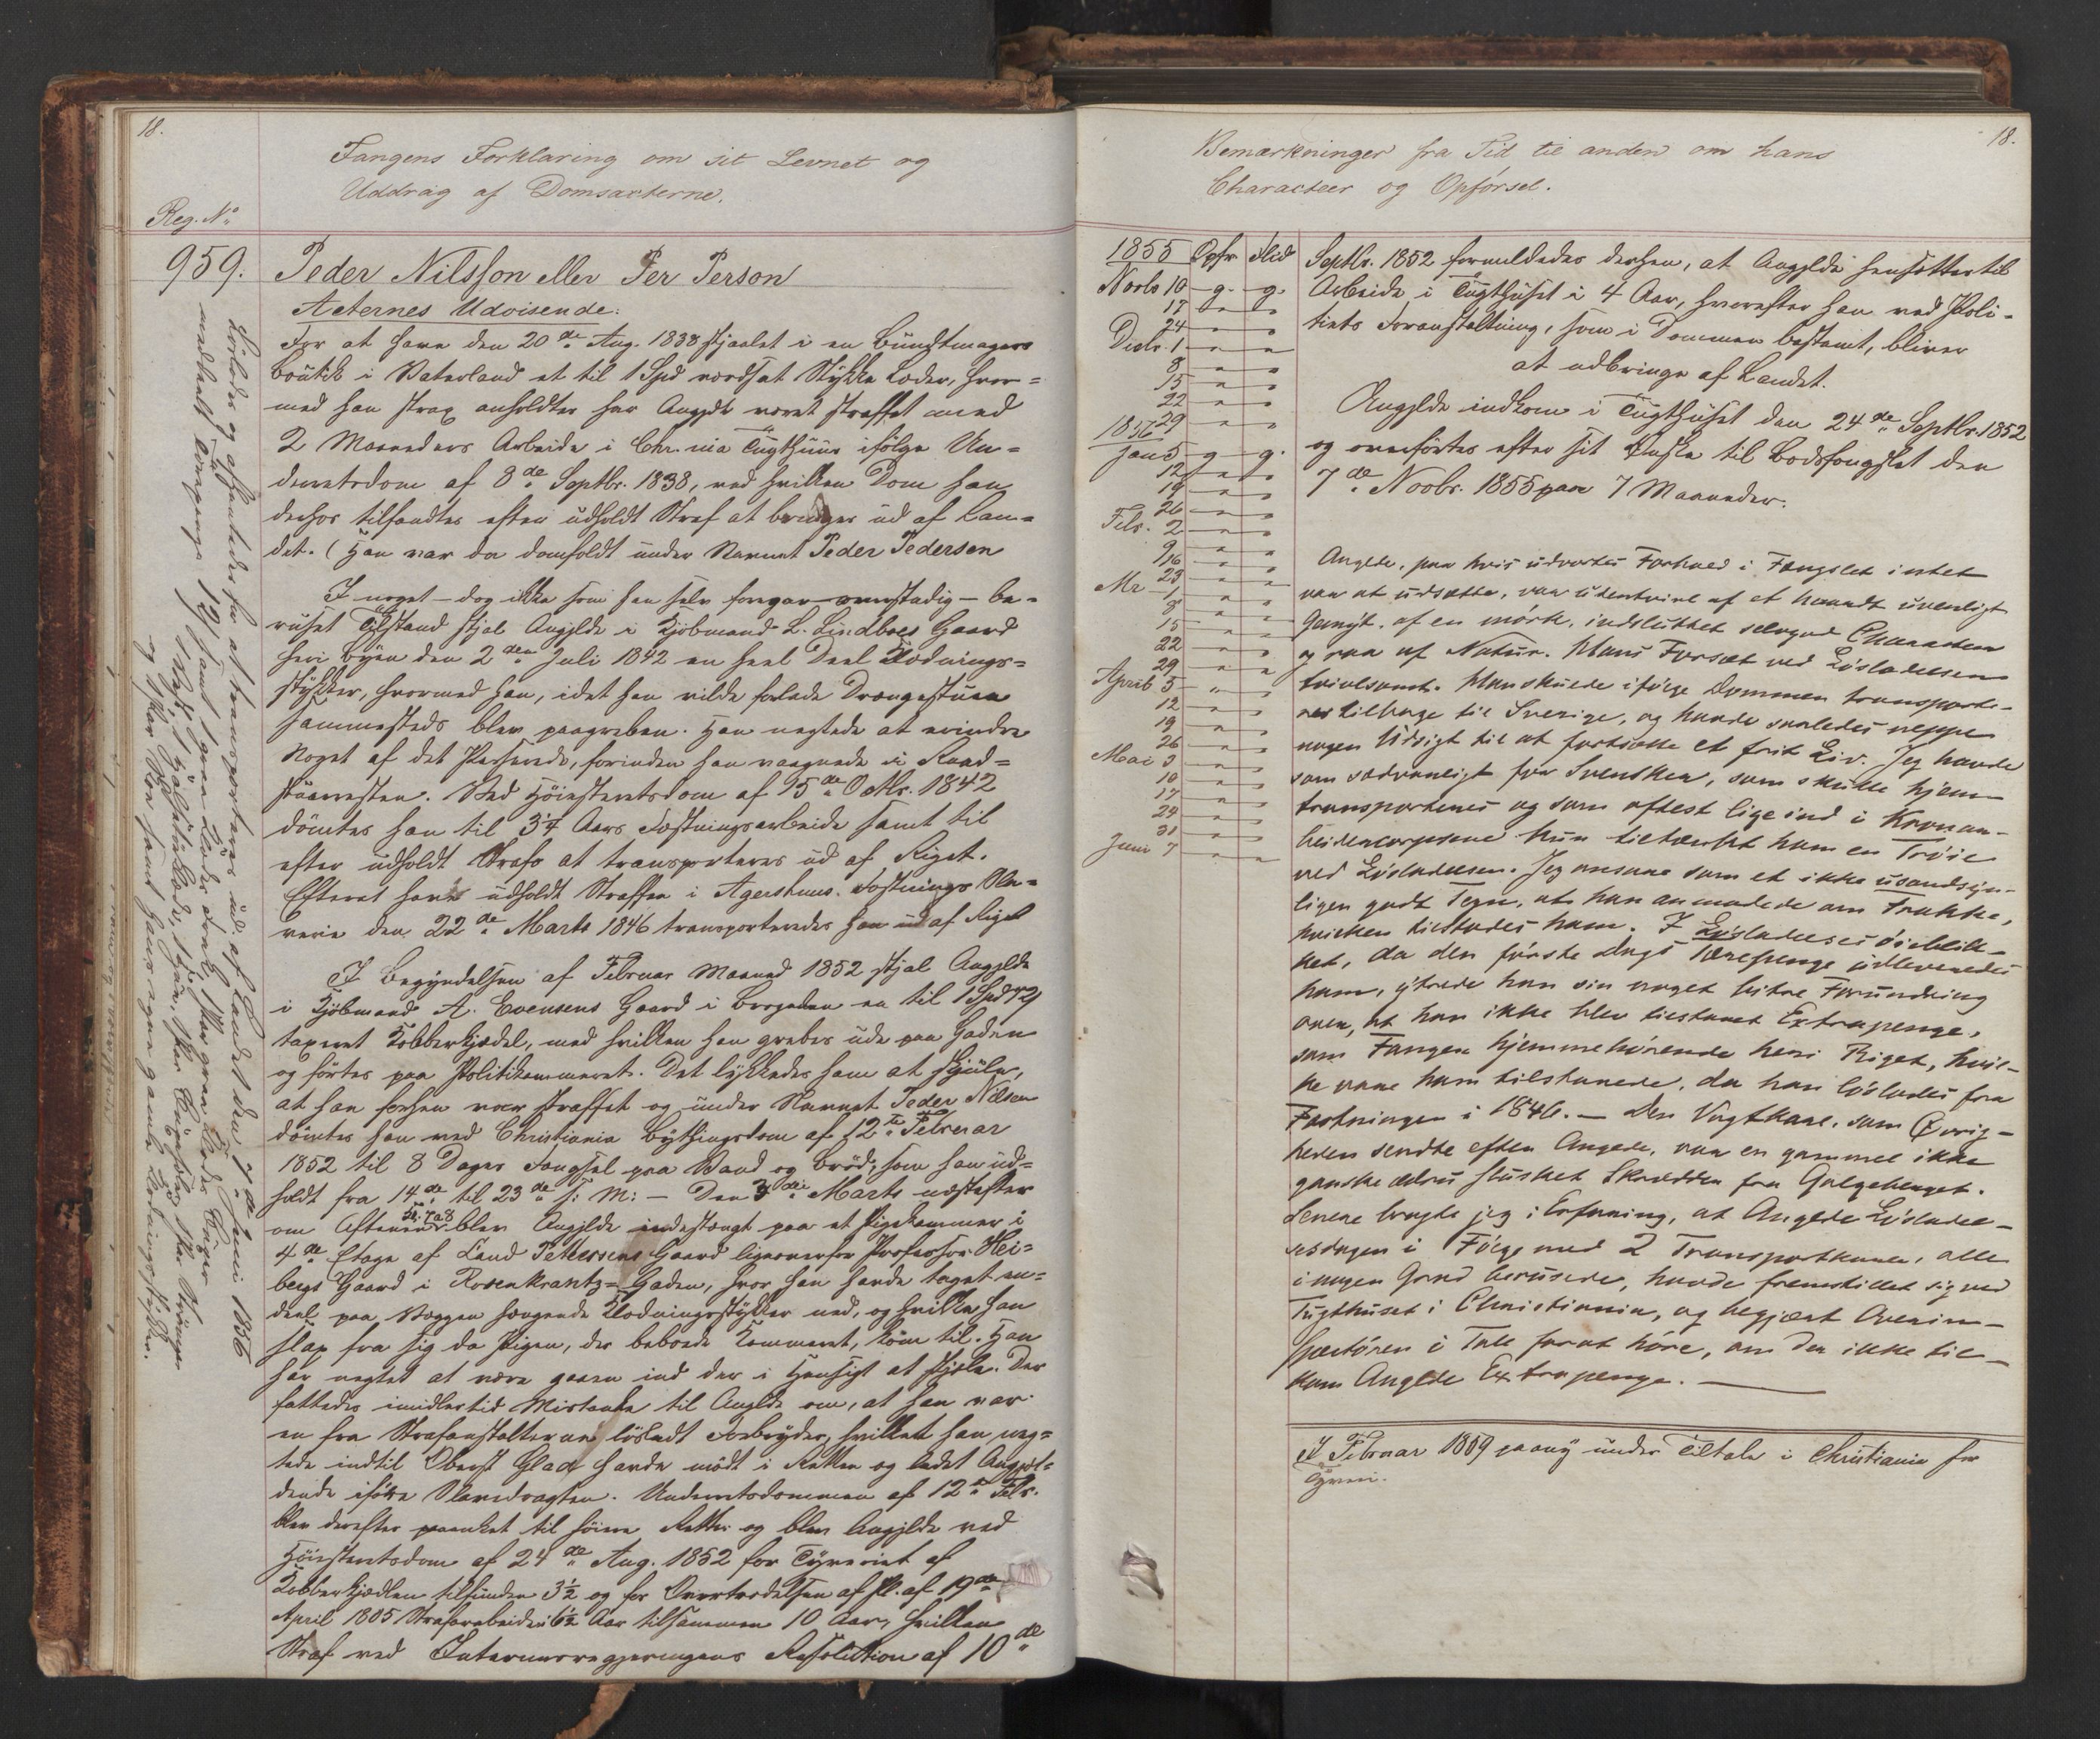 18.
Fangens Forklaring om sit Levnet og
Uddrag af Domsacterne.
Reg. No
959. Peder Nilsson eller Per Person
Acternes Udvisende:
For at have den 20de Aug. 1838 stjaalet i en Bundtmagers
Boutik i Vaterland et til 1 Spd værdsat Stykke Læder, hvor=
med han strax anholdtes har Angjldt været straffet med
2 Maaneders Arbeide i Chr.nia Tugthuus ifølge Un=
derretsdom af 8de Septbr. 1838, ved hvilken Dom han
derhos tilfandtes efter udholdt Straf at bringes ud af Lan=
det. (Han var da domfældt under Navnet Peder Pedersen
I noget - dog ikke som han selv foregav overstadig - be=
ruset Tilstand stjal Angjldte i Kjøbmand L. Lindboes Gaard
her i Byen den 2den Juli 1842 en heel Deel Klædnings=
stykker, hvormed han, idet han vilde forlade Drengestuen
sammesteds blev paagreben. Han negtede at erindre
Noget af det Passerede, forinden han vaagnede i Raad=
stuearresten. Ved Høiesteretsdom af 15de Octbr. 1842
dømtes han til 3¼ Aars Fæstningsarbeide samt til
efter udholdt Straf at transporteres ud af Riget.
Efterat have udholdt Straffen i Agershuus Fæstnings Sla=
verie den 22de Marts 1846 transporteredes han ud af Riget
I Begyndelsen af Februar Maaned 1852 stjal Angjldte
i Kjøbmand A. Evensens Gaard i Brogaden en til 1 Spd 72 ß
taxeret Kobberkjedel, med hvilken han grebes ude paa Gaden
og førtes paa Politikammeret. Det lykkedes ham at skjule,
at han forhen var straffet og under Navnet Peder Nilsen
dømtes han ved Christiania Bythingsdom af 12te Februar
1852 til 8 Dages Fængsel paa Vand og Brød, som han ud=
holdt fra 14de til 23de s: M: - Den 3die Marts næstefter
om Aftenen Kl. 7 a 8 blev Angjldte indestængt paa et Pigekammer i
4de Etage af Land Pettersens Gaard ligeoverfor Professor Hei=
bergs Gaard i Rosenkrantz=Gaden, hvor han havde taget en=
deel paa Væggen hængende Klædningsstykker ned, og hvilke han
slap fra sig da Pigen, der beboede Kammeret, kom til. Han
har negtet at være gaaen ind der i Hensigt at stjæle. Der
fattedes imidlertid Mistanke til Angjldte om, at han var
en fra Strafanstalterne løsladt Forbryder, hvilket han neg=
tede indtil Oberst Glad havde mødt i Retten og ladet Angjel=
dende iføre Slavedragten. Underretsdommen af 12te Febr.
blev derefter paaanket til høiere Rett: og blev Angjldte ved
Høiesteretsdom af 24de Aug. 1852 for Tyveriet af
Kobberkjedlen tilfunden 3½ og for Overtrædelsen af Pl. af 19de
April 1805 Strafarbeide i 6½ Aar tilsammen 10 Aar, hvilken
Straf ved Interimsregjeringens Resolution af 10de
Løslades og afhentedes for at transporteres ud af Landet den 7de Juni 1856
18.
Bemærkninger fra Tid til anden om hans
Character og Opførsel.
1855 Opfør Flid
Novbr 10 g. g.
17 " "
24 " "
Decbr. 1 " "
8 " "
15 " "
22 " "
29 " "
1856
Jan 5 g g.
12 " "
19 " "
26 " "
Febr. 2 " "
9 " "
16 " "
23 " "
Mr 1 " "
8 " "
15 " "
22 " "
29 " "
April 5 " "
12 " "
19 " "
26 " "
Mai 3 " "
10 " "
17 " "
24 " "
31 " "
Juni 7 " "
Septbr. 1852 formildedes derhen, at Angjldte hensættes til
Arbeide i Tugthuset i 4 Aar, hvorefter han ved Poli=
tiets Foranstaltning, som i Dommen bestemt, bliver
at udbringe af Landet.
Angjldte indkom i Tugthuset den 24de Septbr. 1852
og overførtes efter sit Ønske til Bodsfængslet den
7de Novbr. 1855 paa 7 Maaneder.
Angldte, paa hvis udvortes Forhold i Fængslet intet
var at udsætte, var udentvivl af et haardt uvenligt
Gemyt, af en mørk, indsluttet selvgod Character
og raa af Natur. Hans Forsæt ved Løsladelsen
tvivlsomt. Han skulde ifølge Dommen transporte-
res tilbage til Sverige, og havde saaledes neppe
nogen Udsigt til at fortsætte et frit Liv. Jeg havde
som sædvanligt for Svensker, som skulle hjem-
transporteres og som oftest lige ind i Kronar-
beidercorpsene kun tiltænkt ham en Trøie
ved Løsladelsen. Jeg ansaae som et ikke usandsyn-
ligen godt Tegn, at han anmodede om Frakke,
hvilken tilstodes ham. I Løsladelsesøieblik-
ket, da den første Dags Tærepenge udleveredes
ham, yttrede han sin noget bittre Forundring
over, at han ikke blev tilstaaet Extrapenge,
som Fanger hjemmehørende heri Riget, hvil-
ke vare ham tilstaaede, da han løslodes fra
Fæstningen i 1846. — Den Vagtkarl, som Øvrig-
heden sendte efter Angldte, var en gammel ikke
ganske ædru slusket Skrædder fra Galgeberget.
Senere bragte jeg i Erfaring, at Angldte Løsladel-
sesdagen i Følge med 2 Transportkarle, alle
i nogen Grad berusede, havde fremstillet sig ved
Tugthuset i Christiania, og begjært Overin-
spectøren i Tale for at høre, om der ikke til-
kom Angldte Extrapenge. —
I Februar 1859 paany under Tiltale i Christiania for
Tyveri.